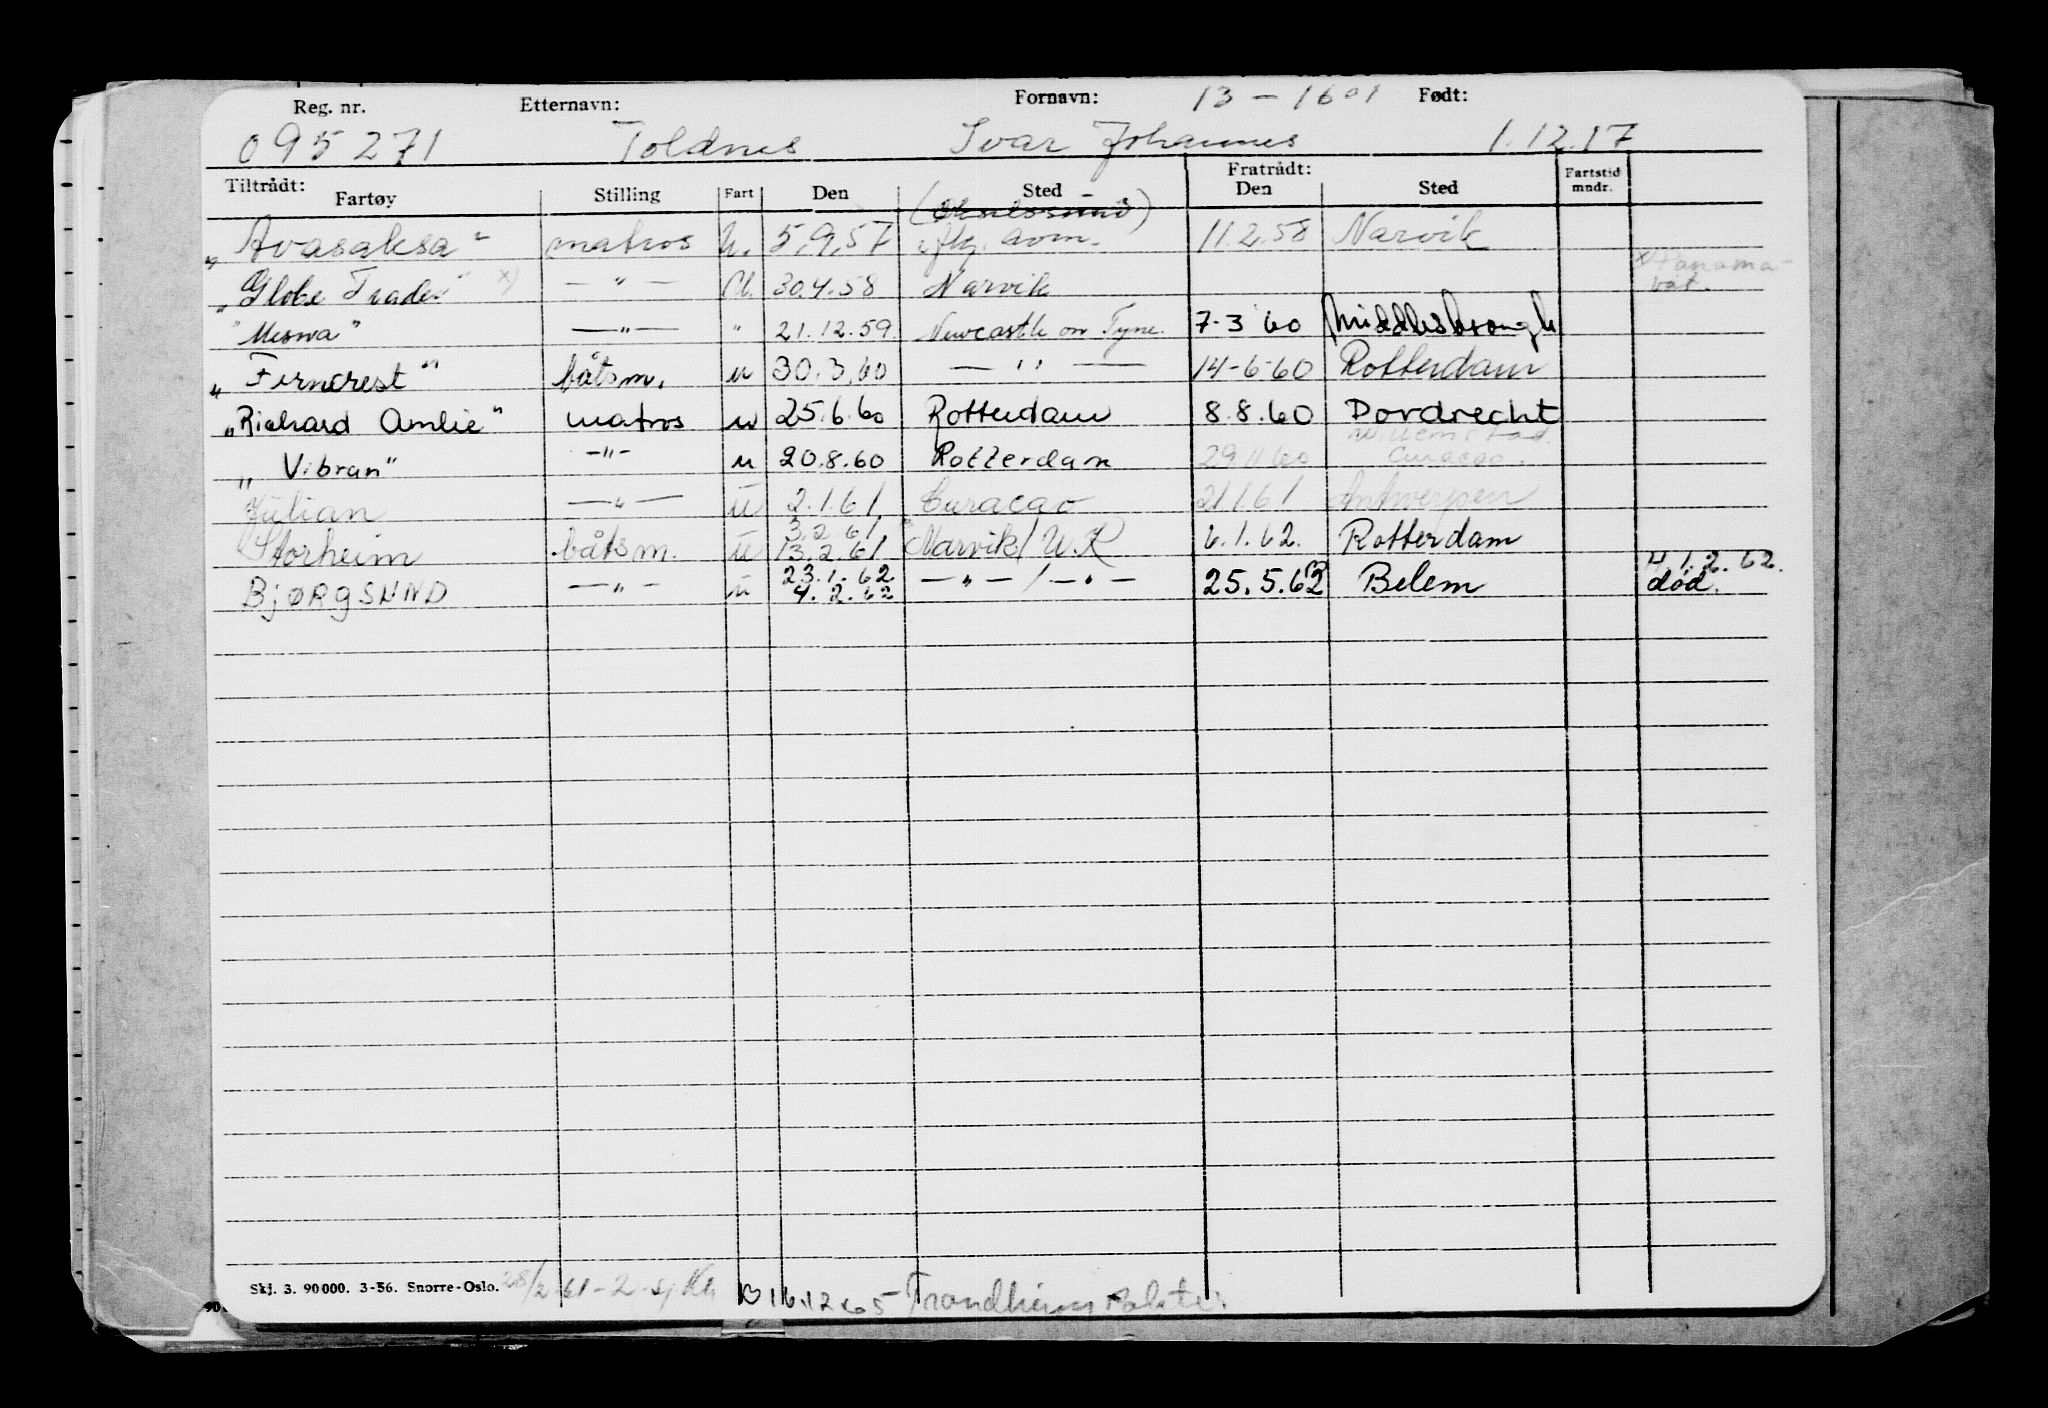 Reg. nr. Etternavn: Fornavn: 13 - 1601 Født:
095271 Toldnes Ivar Johannes 1.12.17
Tiltrådt: Fratrådt: Fartstid
Fartøy Stilling Fart Den Sted Den Sted mndr.
(Oxelesund)
„Avasaksa" matros U. 5.9.57 Narvik 11.2.58
„Globe Trader" x) — " — U. 30.4.58 Narvik x) Panama-
båt.
"Mesna" — " — " 21.12.59 Newcastle on Tyne. 7-3 60 Middlesbrough
„Ferncrest" båtsm. u 30.3.60 — '' — 14-6-60 Rotterdam
„Richard Amlie" matros u 25.6.60 Rotterdam 8.8.60 Dordrecht
Willemstad.
„Vibran" - " - u 20.8.60 Rotterdam 29 11 60 Curacao.
Julian — " — u 2.1.61. Curacao 21 1 61 Antwerpen
3.2.61
Storheim båtsm. u 13.2.61 Narvik/U.K 6.1.62. Rotterdam
23.1.62 4 1.2.62.
BJØRGSUND — " — u 4.2.62 — " — / — " — 25.5.62 Belem død.
Skj. 3. 90 000. 3-56. Snorre-Oslo. 28/2-61-2-sj 16.12.65 Trondheim